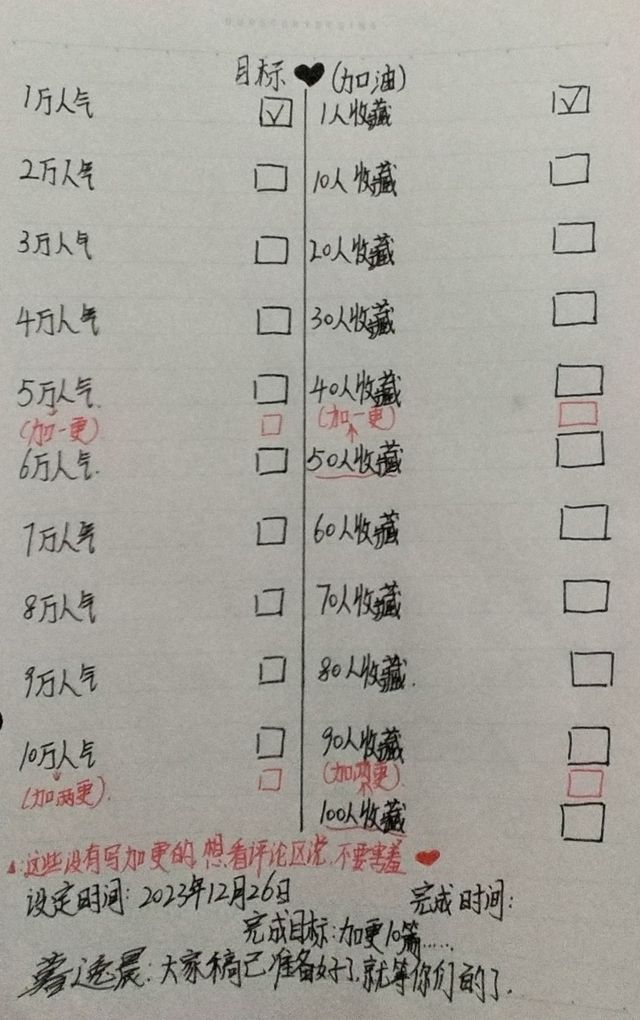 目标❤(加油)
1万人气 ☑ 1人收藏 ☑
2万人气 □ 10人收藏 □
3万人气 □ 20人收藏 □
4万人气 □ 30人收藏 □
5万人气. □ 40人收藏 □
(加一更) □ (加一更) □
6万人气. □ 50人收藏 □
7万人气 □ 60人收藏 □
8万人气 □ 70人收藏 □
9万人气 □ 80人收藏. □
10万人气 □ 90人收藏 □
(加两更). □ (加两更). □
100人收藏 □
▲:这些没有写加更的,想看评论区说,不要害羞❤
设定时间:2023年12月26日 完成时间:
完成目标:加更10篇......
逸晨:大家稿已准备好了,就等你们的了.